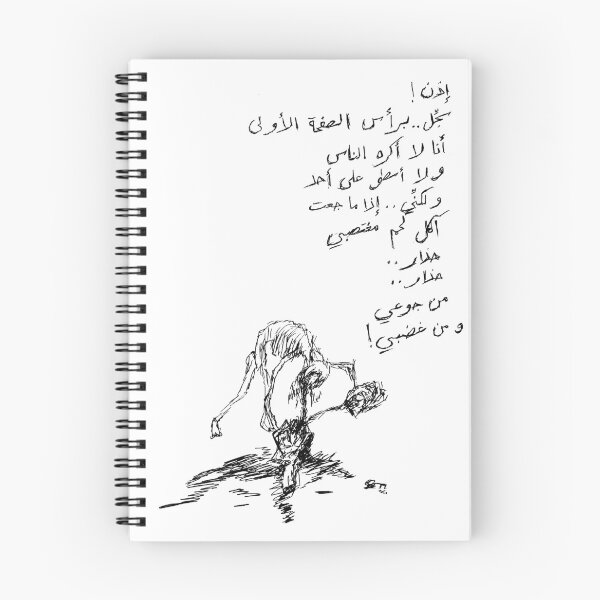 إذن!
سجّل.. برأس الصفحة الأولى
أنا لا أكره الناس
ولا أسطو على أحد
ولكنّي.. إذا ما جعت
آكل لحم مغتصبي
حذار..
حذار..
من جوعي
ومن غضبي!